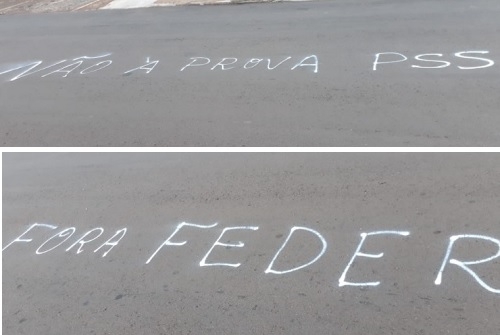 NÃO A PROVA PSS
FORA FEDER